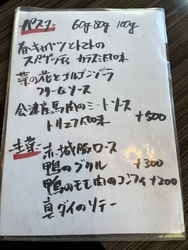 パスタ 60g 80g 100g
春キャベツとトマトの
スパゲッティ カラスミ風味
菜の花とゴルゴンゾーラ
クリームソース
会津産馬肉のミートソース
トリュフ風味 +500
主菜 赤城豚ロース
鴨のブクル +300
鴨のモモ肉のコンフィ +200
真ダイのソテー